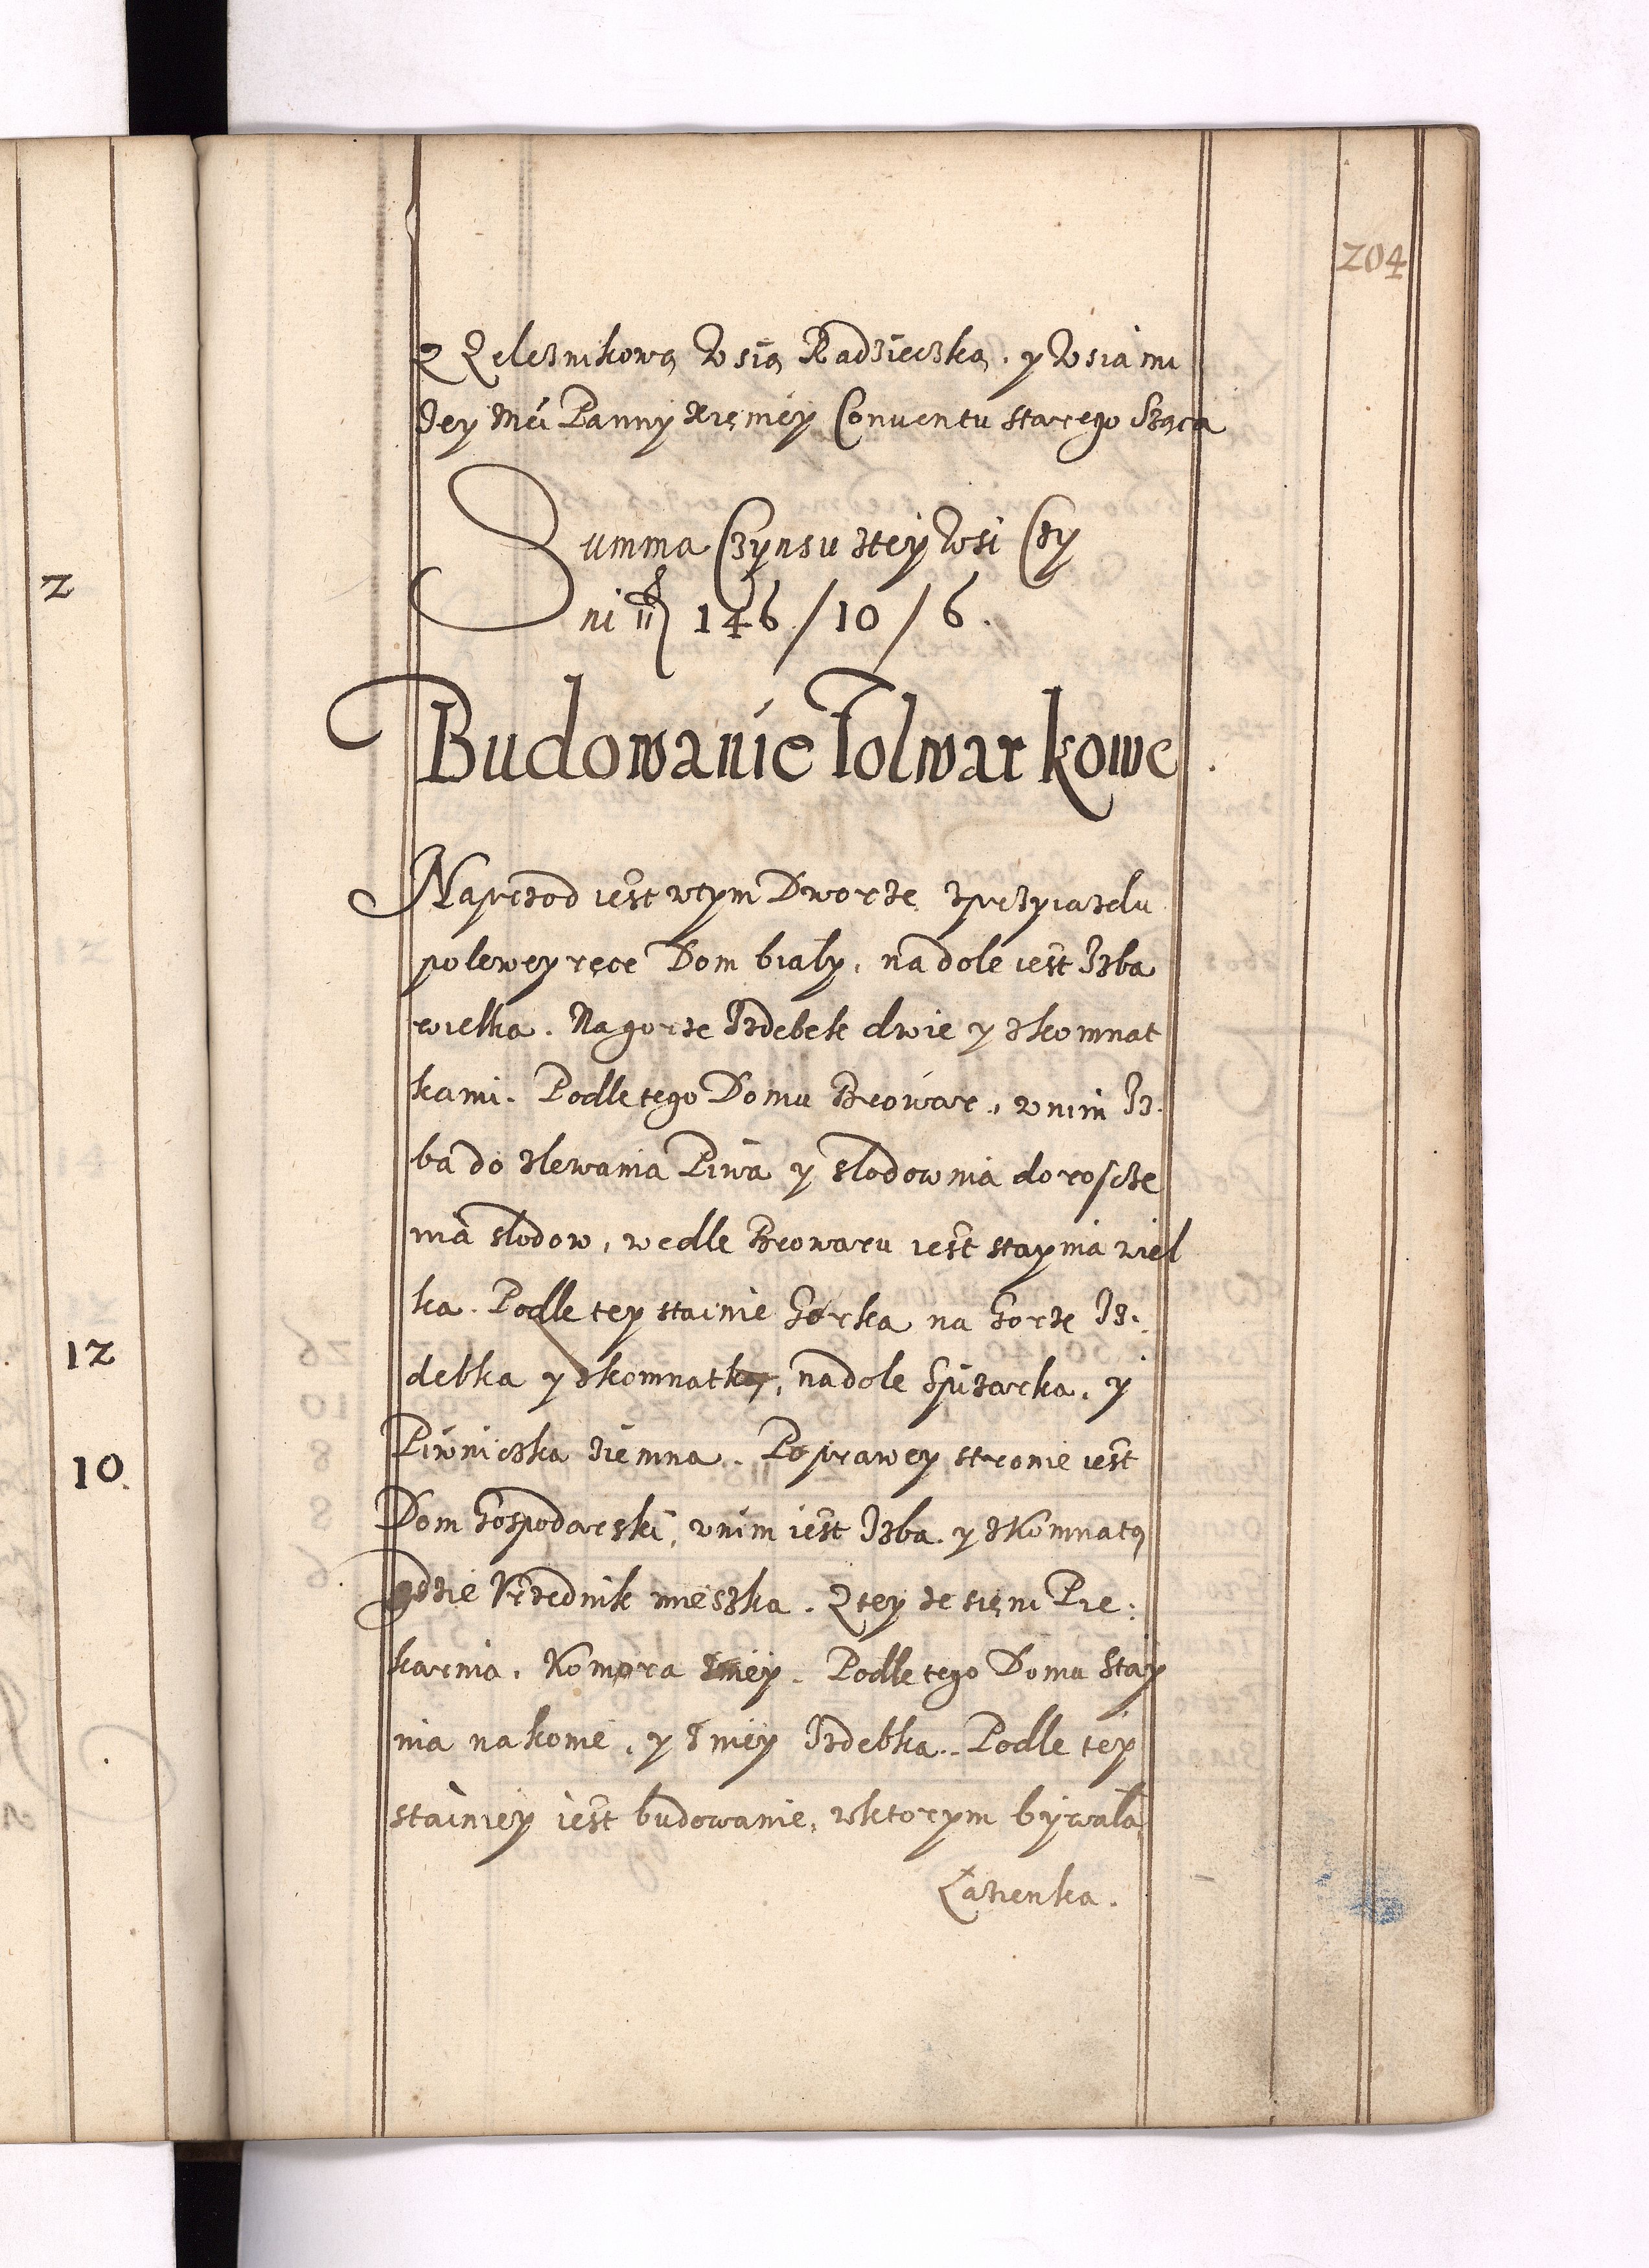 204
z Zelesnikową wsią Radziecką, y wsiami
Jey Mći Panny Xięniey Conventu starego Sącza
Summa Czynsu ztey wsi Czy
ni 146/10/6.
Budowanie Folwarkowe.
Naprzod iest wtym Dworze zprzyiazdu
polewey ręce Dom biały, nadole iest Izba
wielka. Nagorze Izdebek dwie y zkomnat
kami. Podle tego Domu Browar, wnim Iz.
ba do zlewania Piwa y slodownia doroscze
nia slodow, wedle Browaru iest staynia wiel
ka. Podle tey stainie Gorka na Gorze Iz.
debka y zkomnatką, nadole Spizarka, y
Piwniczka ziemna. Poprawey stronie iest
Dom Gospodarski, wnim iest Izba y zKomnatą
gdzie Vrzednik mieszka. Ztey ze sięni Pie:
karnia. Komora wniey. Podle tego Domu Stay
nia nakonie, y wniey Izdebka. Podle tey
stainiey iest budowanie, wktorym bywała
Łazienka.
2
12
10